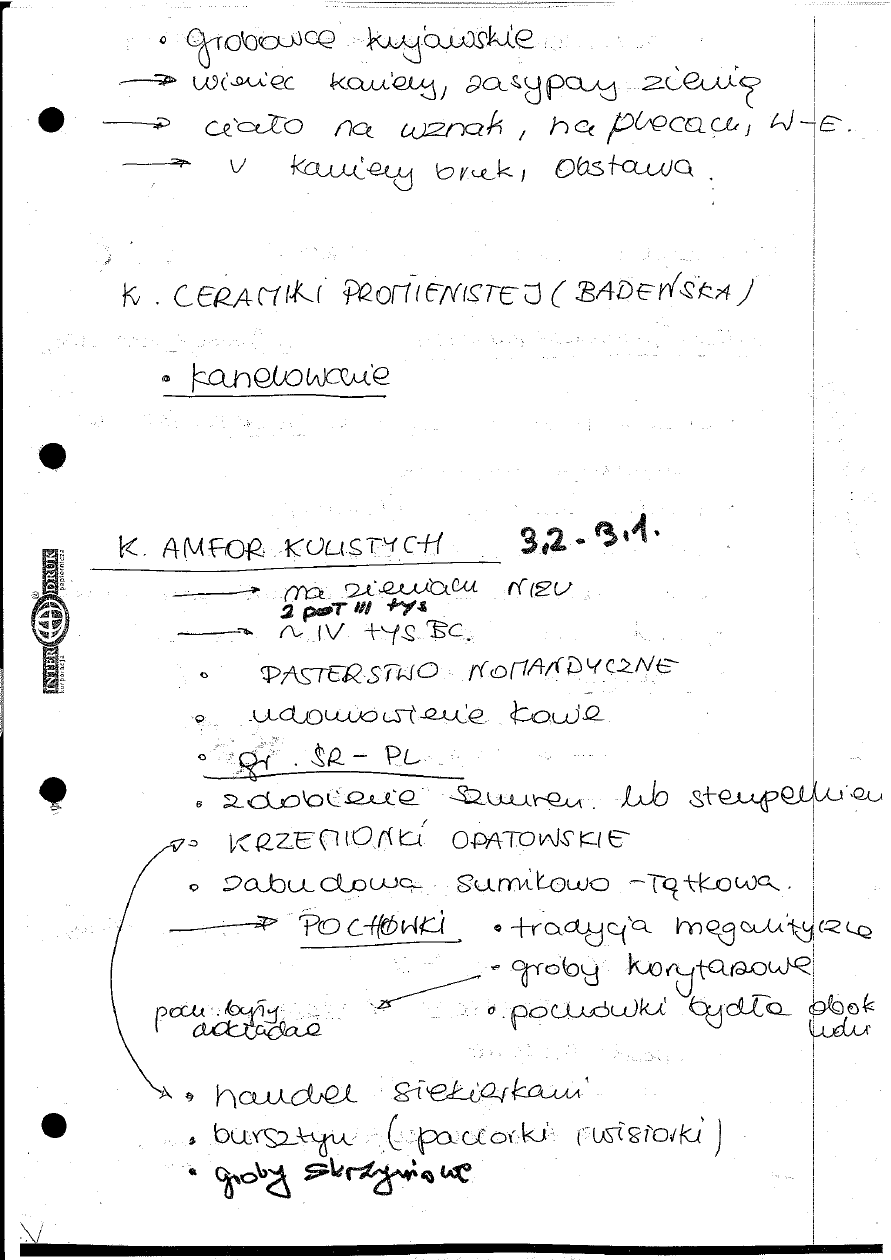 • grobowce kujawskie
→ wieniec kamieny, zasypany ziemią
→ ciało na wznak, na plecach, W-E.
→ V kamieny bruk, obstawa.
K. CERAMIKI PROMIENISTEJ (BADEŃSKA)
• kanelowanie
K. AMFOR KULISTYCH 3,2 - 3,1.
→ na ziemiach NIŻU
2 poł III tys
→ ~ IV tys BC.
• PASTERSTWO NOMANDYCZNE
• udomowienie konie
• gr. ŚR - PL
• zdobienie sznurem lub stempelkiem
• KRZEMIONKI OPATOWSKIE
• zabudowa sumikowo - łątkowa.
→ POCHÓWKI • tradycja megalityczne
- groby korytarzowe
poch. były • pochówki bydła obok
dokładae ludzi
• handel siekierkami
• bursztyn (paciorki i wisiorki)
• groby skrzyniowe
INTER DRUK
korporacja papiernicza